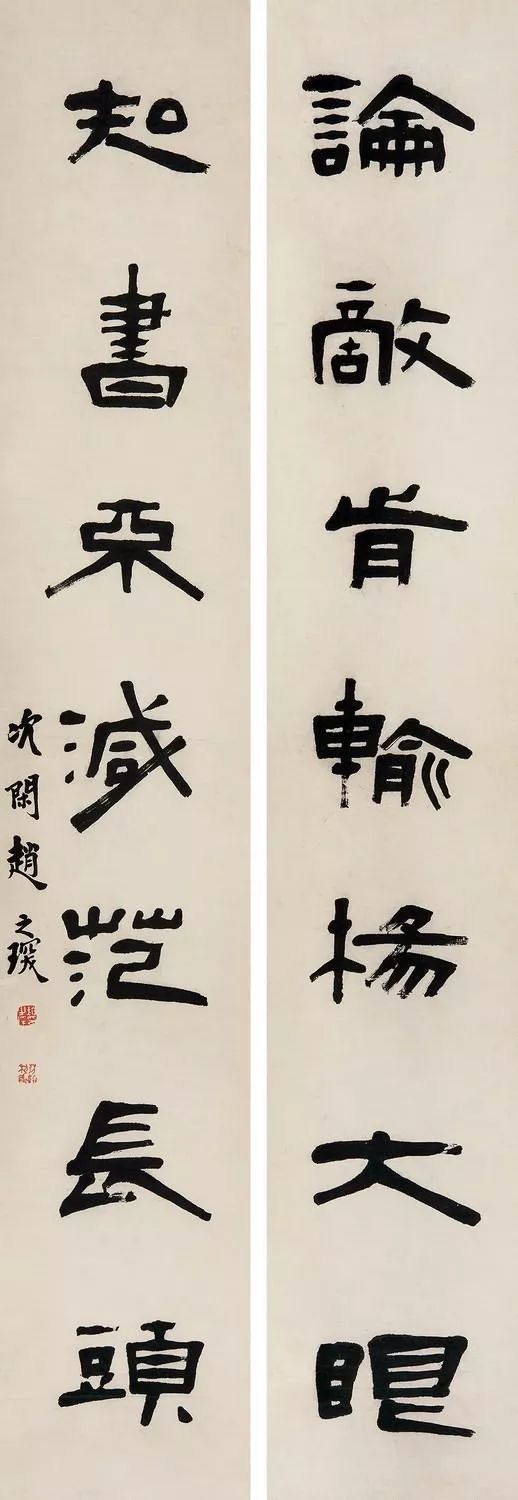 論敵肯輸楊大眼
知書不減范長頭
次閑趙之琛